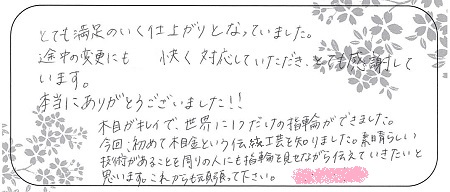 とても満足のいく仕上がりとなっていました。
途中の変更にも 快く対応していただき、とても感謝して
います。
本当にありがとうございました!!
木目がキレイで、世界に1つだけの指輪ができました。
今回、初めて木目金という伝統工芸を知りました。素晴らしい
技術があることを周りの人にも指輪を見せながら伝えていきたいと
思います。これからも頑張って下さい。